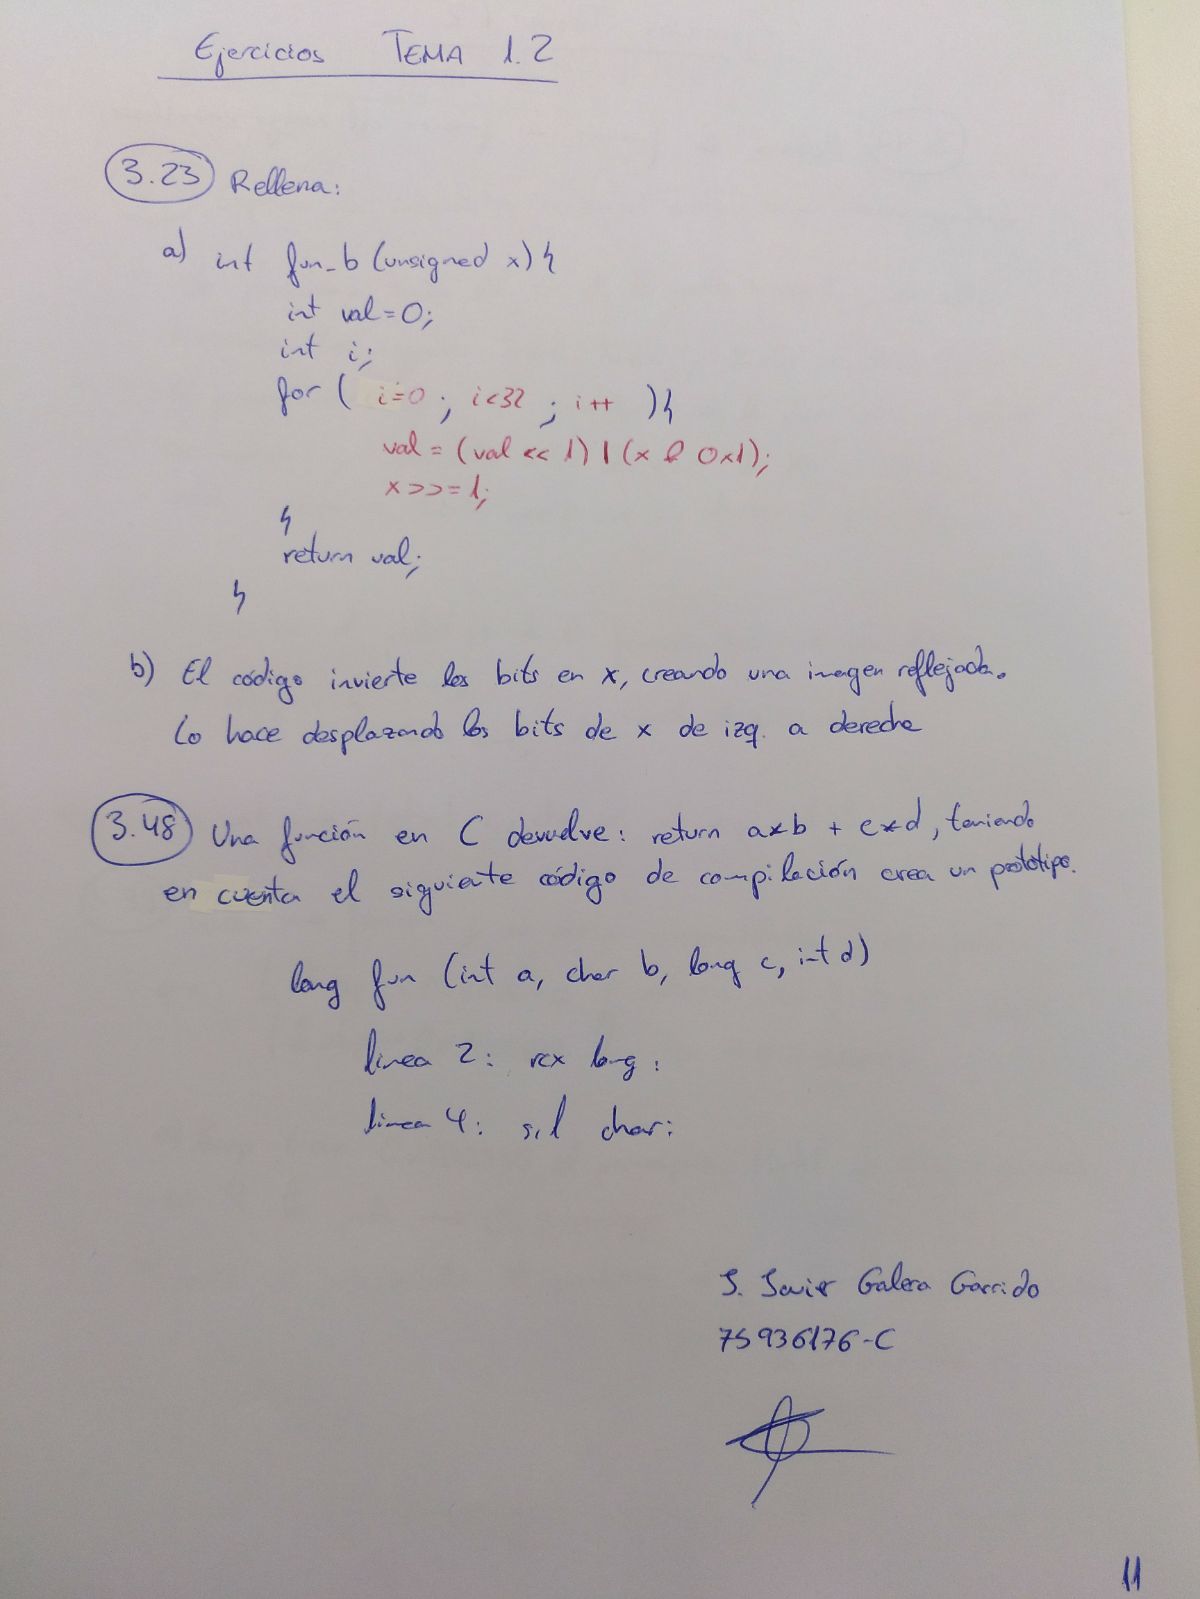 Ejercicios TEMA 1.2
3.23 Rellena:
a) int fun_b (unsigned x) {
int val=0;
int i;
for ( i=0 ; i<32 ; i++ ) {
val = (val << 1) | (x & 0x1);
x >>= 1;
}
return val;
}
b) El código invierte los bits en x, creando una imagen reflejada.
Lo hace desplazando los bits de x de izq. a derecha
3.48 Una función en C devuelve: return a*b + c*d, teniendo
en cuenta el siguiente código de compilación crea un prototipo.
long fun (int a, char b, long c, int d)
linea 2: rcx long :
linea 4: sil char:
J. Javier Galera Garrido
75936176-C
11